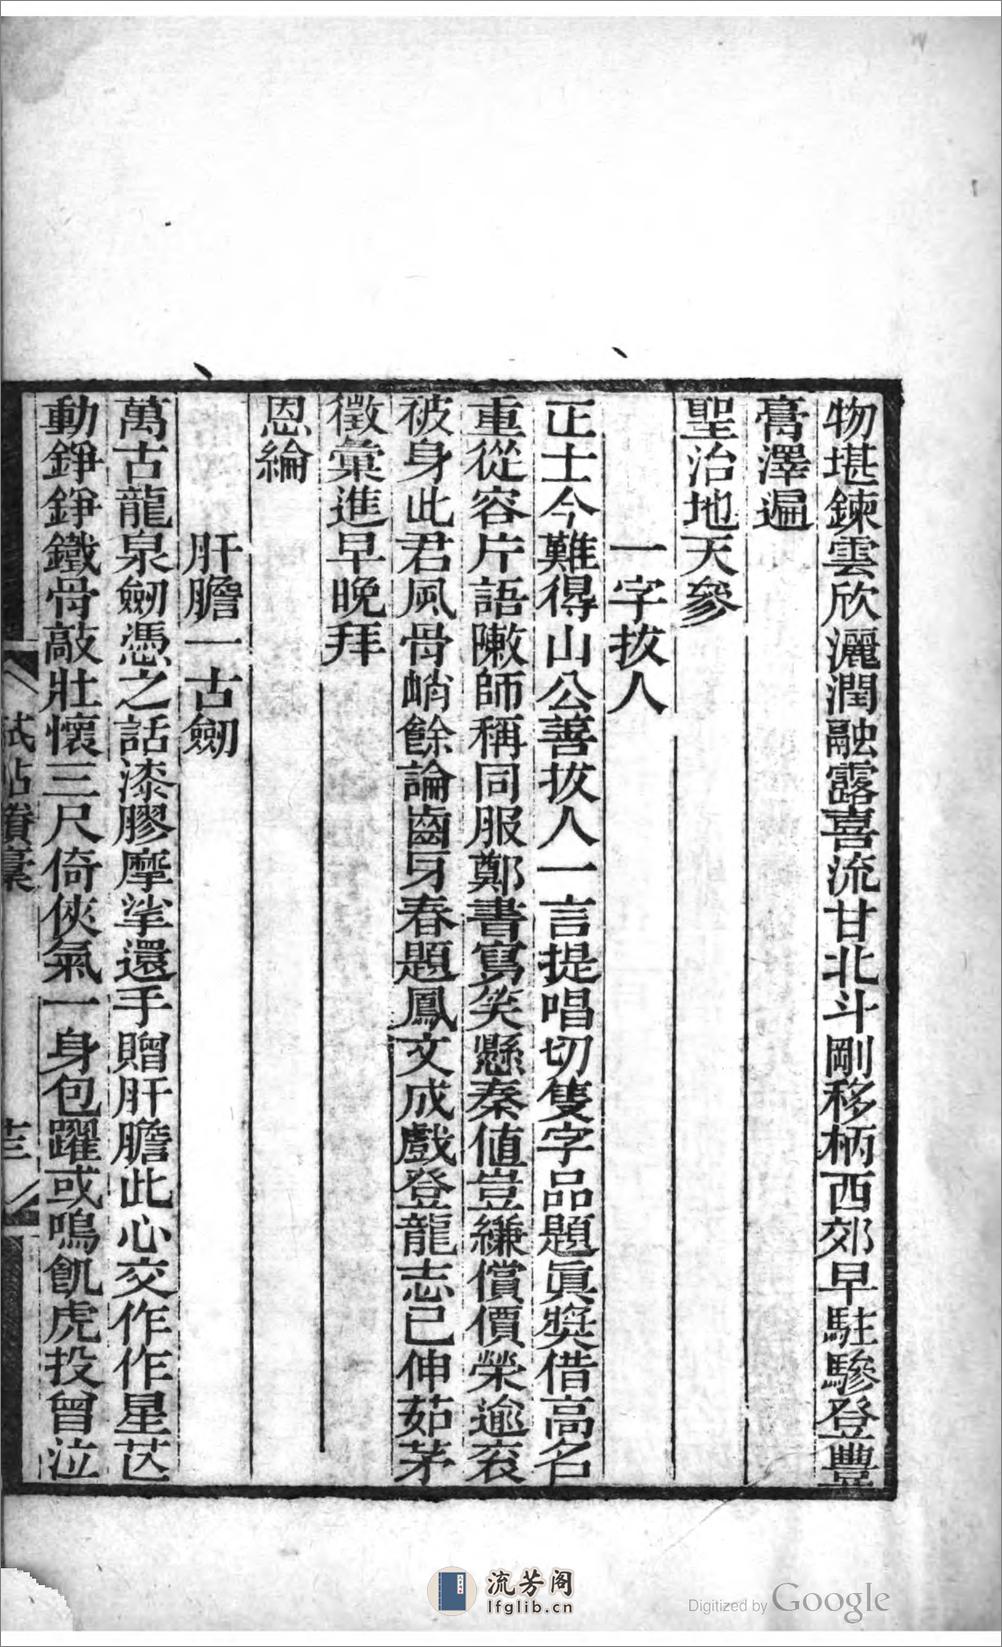 物堪鍊雲欣灑潤融露喜流甘北斗剛移柄西郊早駐驂登豐
膏澤遍
聖治地天參
一字拔人
正士今難得山公善拔人一言提唱切隻字品題眞奬借高名
重從容片語陳敕師稱同服鄭書寫笑懸秦値豈縑償價榮逾袞
被身此君風骨峭餘論齒牙春題鳳文成戲登龍志已伸茹茅
徵彙進早晚拜
恩綸
肝膽一古劒
萬古龍泉劒憑之話漆膠摩挲還手贈肝膽此心交作作星芒
動錚錚鐵骨敲壯懷三尺倚俠氣一身包躍或鳴飢虎投曾泣
試帖彙
流芳阁
lfglib.cn
Digitized by Google